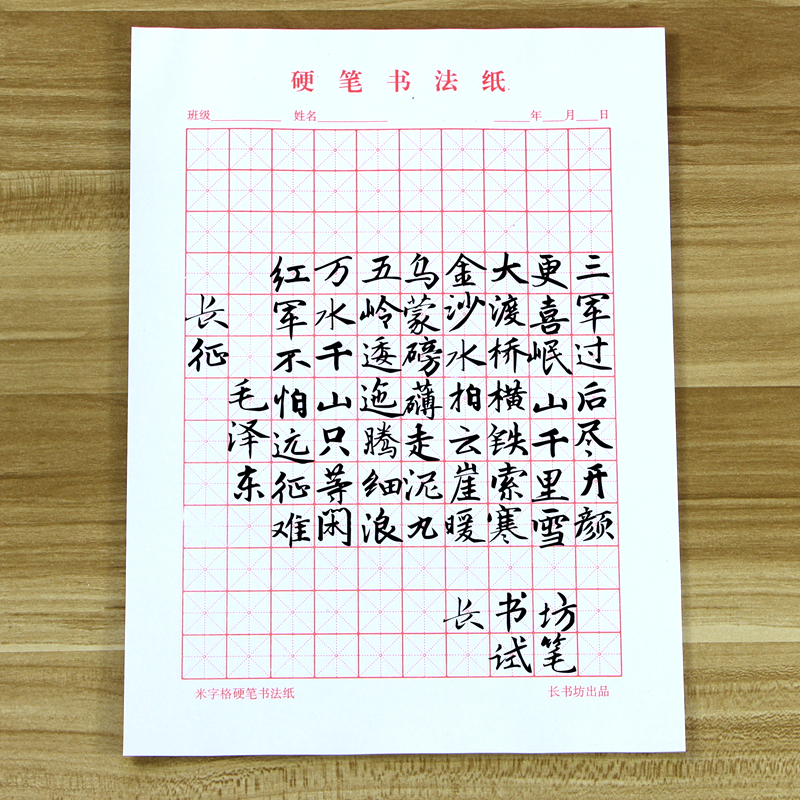 硬笔书法纸
班级 姓名 年 月 日
长征
毛泽东
红军不怕远征难
万水千山只等闲
五岭逶迤腾细浪
乌蒙磅礴走泥丸
金沙水拍云崖暖
大渡桥横铁索寒
更喜岷山千里雪
三军过后尽开颜
长书坊
试笔
米字格硬笔书法纸
长书坊出品